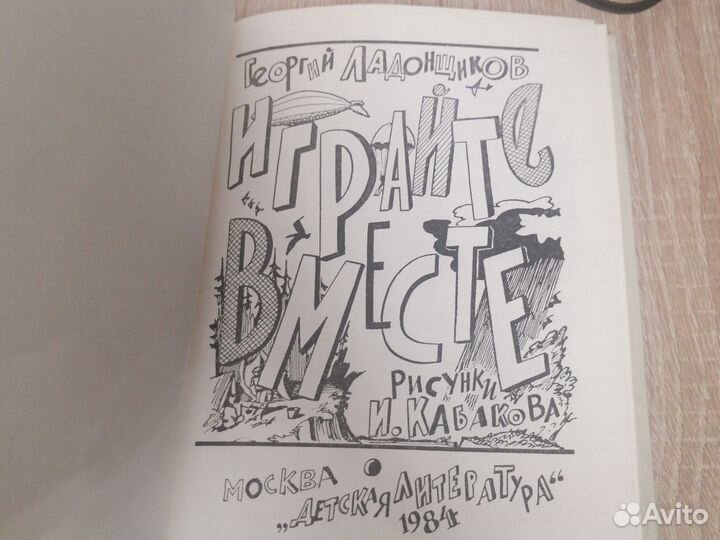 Георгий Ладонщиков
ИГРАЙТЕ
ВМЕСТЕ
Рисунки
И. Кабакова
Москва
„Детская литература“
1984
Avito